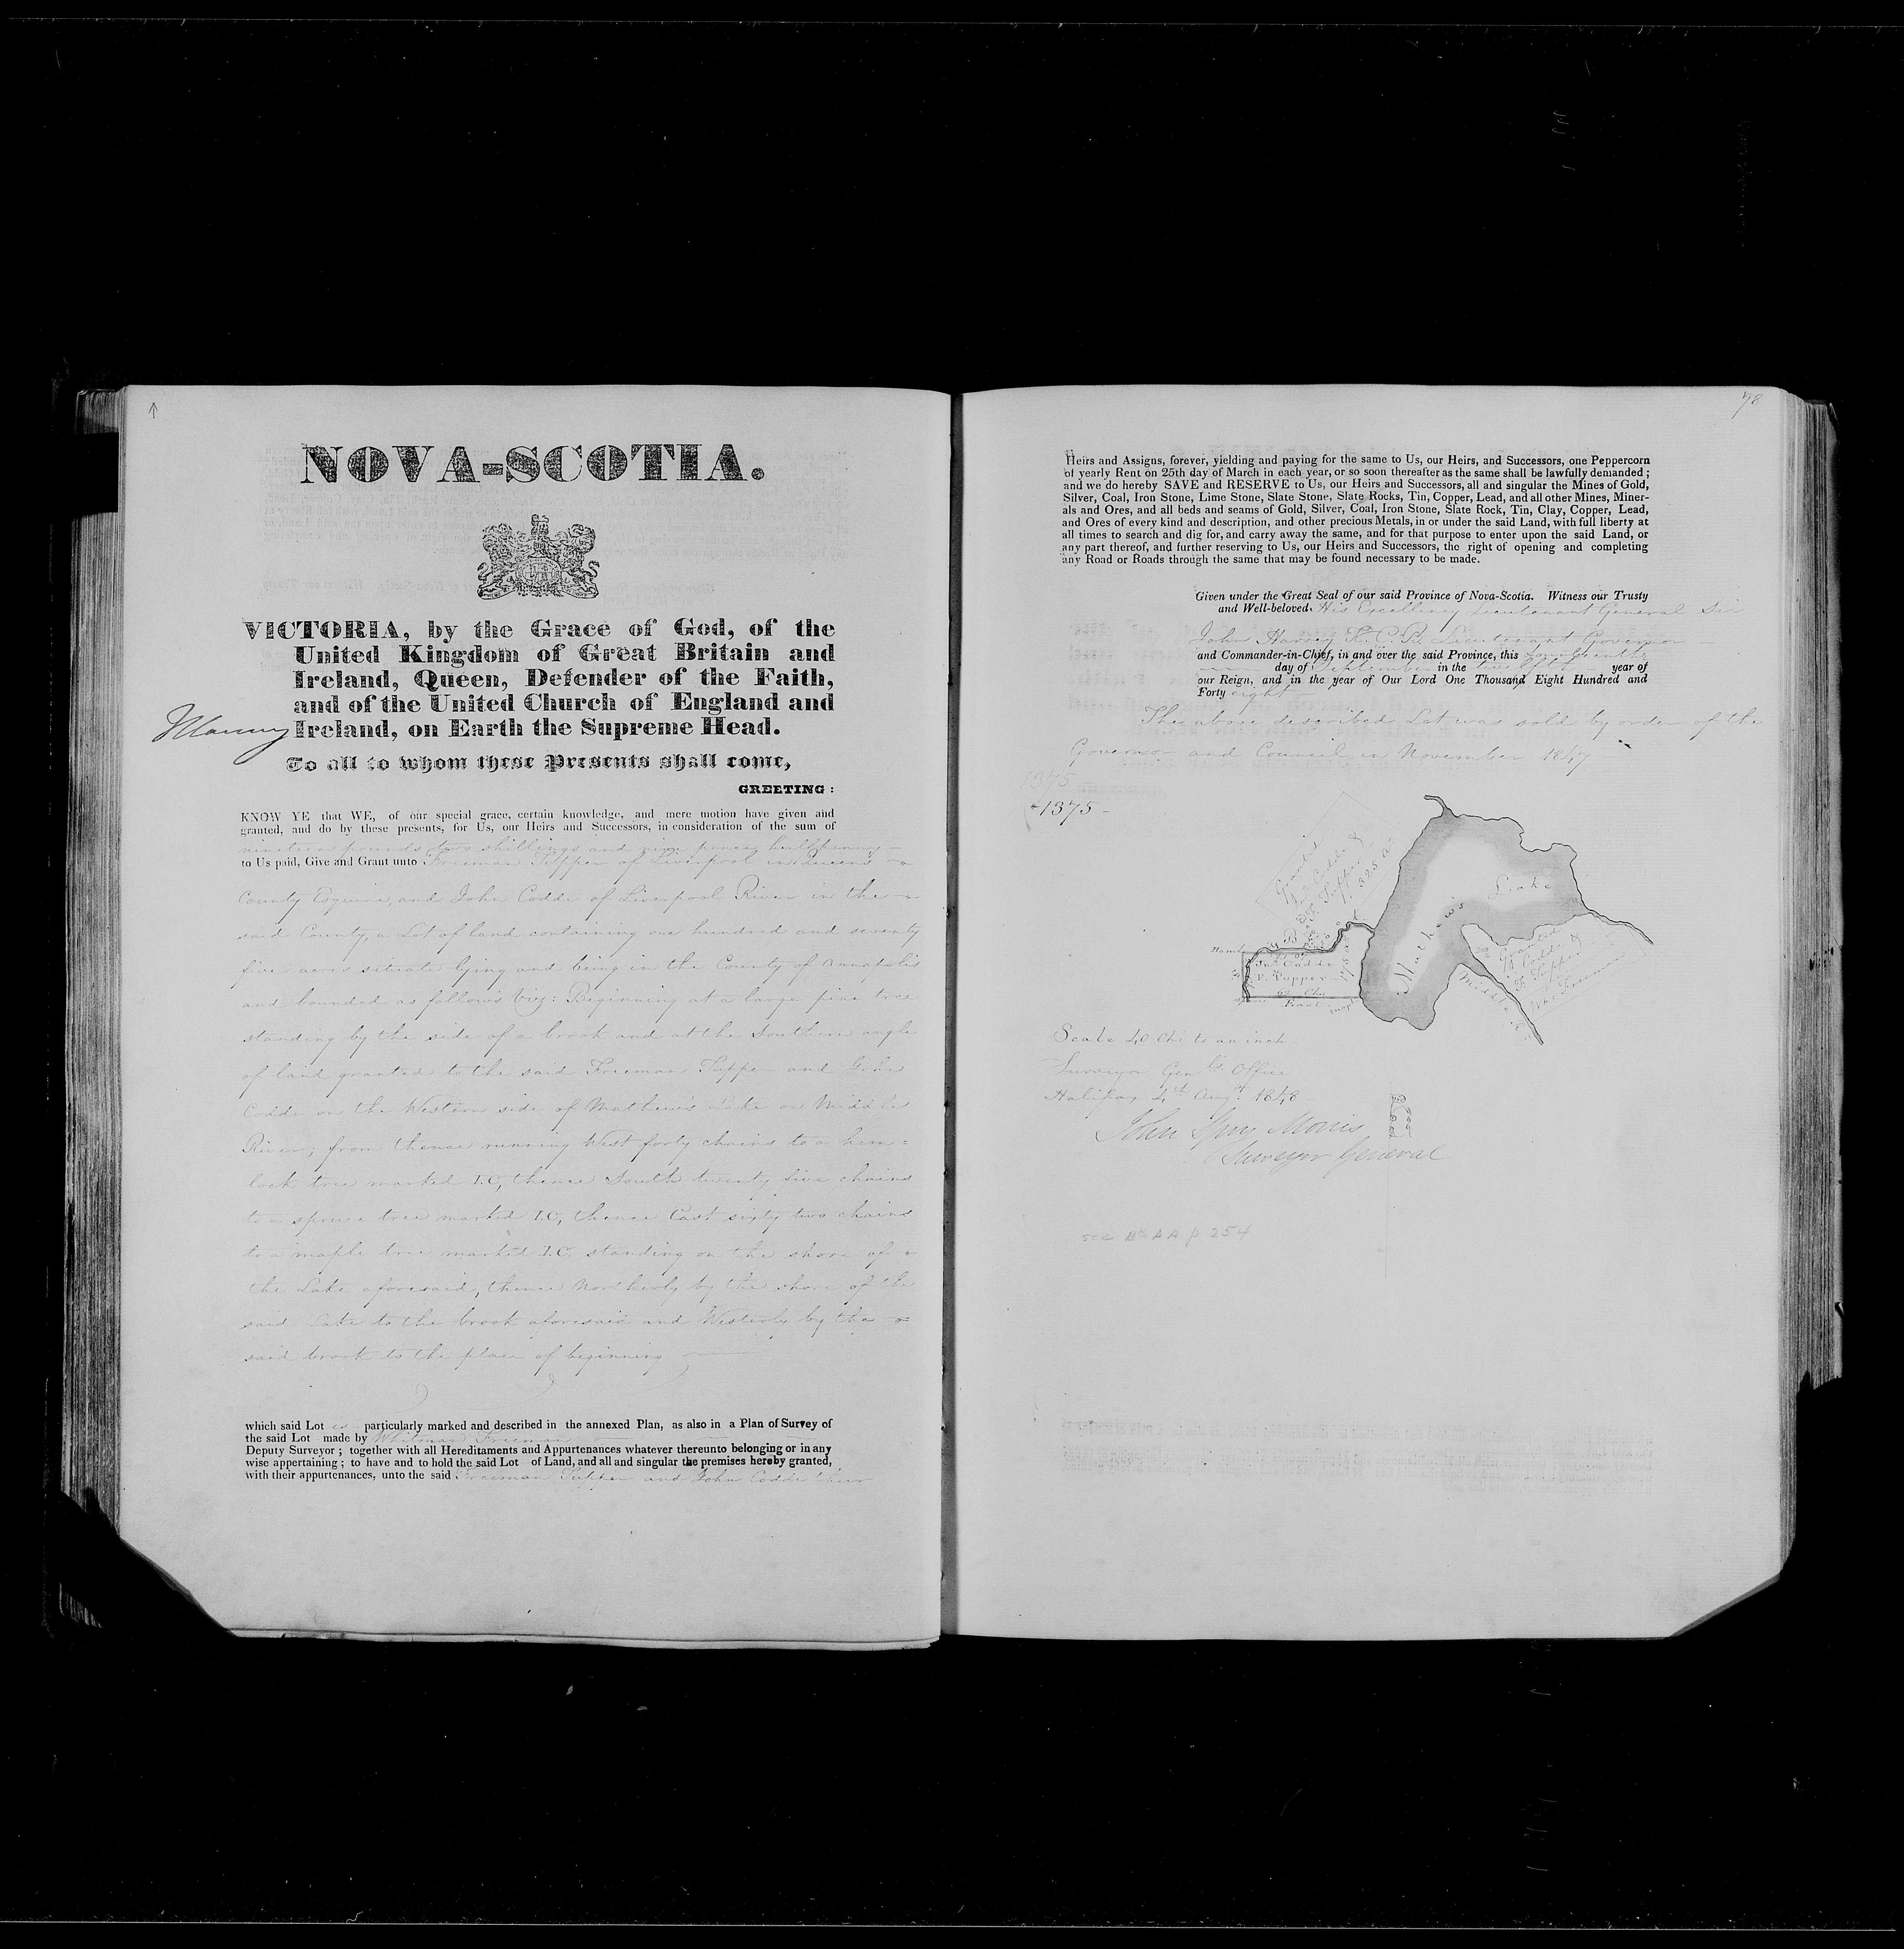 NOVA-SCOTIA.
VICTORIA, by the Grace of God, of the
United Kingdom of Great Britain and
Ireland, Queen, Defender of the Faith,
and of the United Church of England and
Ireland, on Earth the Supreme Head.
To all to whom these Presents shall come,
GREETING:
KNOW YE that WE, of our special grace, certain knowledge, and mere motion have given and
granted, and do by these presents, for Us, our Heirs and Successors, in consideration of the sum of
nineteen pounds two shillings and nine pence halfpenny
to Us paid, Give and Grant unto Freeman Tupper of Liverpool in Queens
County Esquire, and John Codde of Liverpool River in the
said County, a Lot of land containing one hundred and seventy
five acres situate lying and being in the County of Annapolis
and bounded as follows viz: Beginning at a large pine tree
standing by the side of a brook and at the Southern angle
of land granted to the said Freeman Tupper and John
Codde on the Western side of Mathew's Lake on Middle
River; from thence running West forty chains to a hem=
lock tree marked I.C, thence South twenty five chains
to a spruce tree marked I.C, thence East sixty two chains
to a maple tree marked I.C. standing on the shore of
the Lake aforesaid, thence Northerly by the shore of the
said Lake to the brook aforesaid and Westerly by the
said brook to the place of beginning
which said Lot is particularly marked and described in the annexed Plan, as also in a Plan of Survey of
the said Lot made by Whitman Freeman
Deputy Surveyor; together with all Hereditaments and Appurtenances whatever thereunto belonging or in any
wise appertaining; to have and to hold the said Lot of Land, and all and singular the premises hereby granted,
with their appurtenances, unto the said Freeman Tupper and John Codde their
78
Heirs and Assigns, forever, yielding and paying for the same to Us, our Heirs, and Successors, one Peppercorn
of yearly Rent on 25th day of March in each year, or so soon thereafter as the same shall be lawfully demanded;
and we do hereby SAVE and RESERVE to Us, our Heirs and Successors, all and singular the Mines of Gold,
Silver, Coal, Iron Stone, Lime Stone, Slate Stone, Slate Rocks, Tin, Copper, Lead, and all other Mines, Miner-
als and Ores, and all beds and seams of Gold, Silver, Coal, Iron Stone, Slate Rock, Tin, Clay, Copper, Lead,
and Ores of every kind and description, and other precious Metals, in or under the said Land, with full liberty at
all times to search and dig for, and carry away the same, and for that purpose to enter upon the said Land, or
any part thereof, and further reserving to Us, our Heirs and Successors, the right of opening and completing
any Road or Roads through the same that may be found necessary to be made.
Given under the Great Seal of our said Province of Nova-Scotia. Witness our Trusty
and Well-beloved His Excellency Lieutenant General Sir
John Harvey K.C.B. Lieutenant Governor
and Commander-in-Chief, in and over the said Province, this fourteenth
day of September in the twelfth year of
our Reign, and in the year of Our Lord One Thousand Eight Hundred and
Forty eight
The above described Lot was sold by order of the
Governor and Council in November 1847
1375
-1375-
Granted
Jno Codde &
F. Tupper
325 Ac
Lake
Mathew's
Brook
Jno Codde
F. Tupper
175 Ac
62 Chs
East
maple
Granted
J. Codde &
F. Tupper
Middle R
Scale 40 Chs to an inch
Surveyor Genls Office
Halifax 4th Augt 1848
John Spry Morris
Surveyor General
see Bk AA p 254